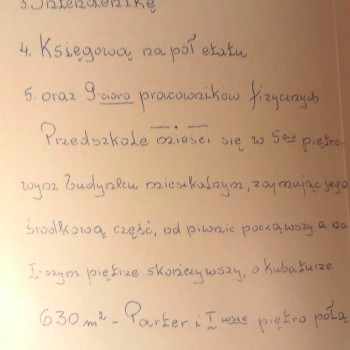 3. Intendentkę
4. Księgową na pół etatu
5. oraz 9-cioro pracowników fizycznych
Przedszkole mieści się w 5cio piętro-
wym budynku mieszkalnym, zajmując jego
środkową część, od piwnic począwszy a na
I-szym piętrze skończywszy, o kubaturze
630 m² - Parter i I wsze piętro połą